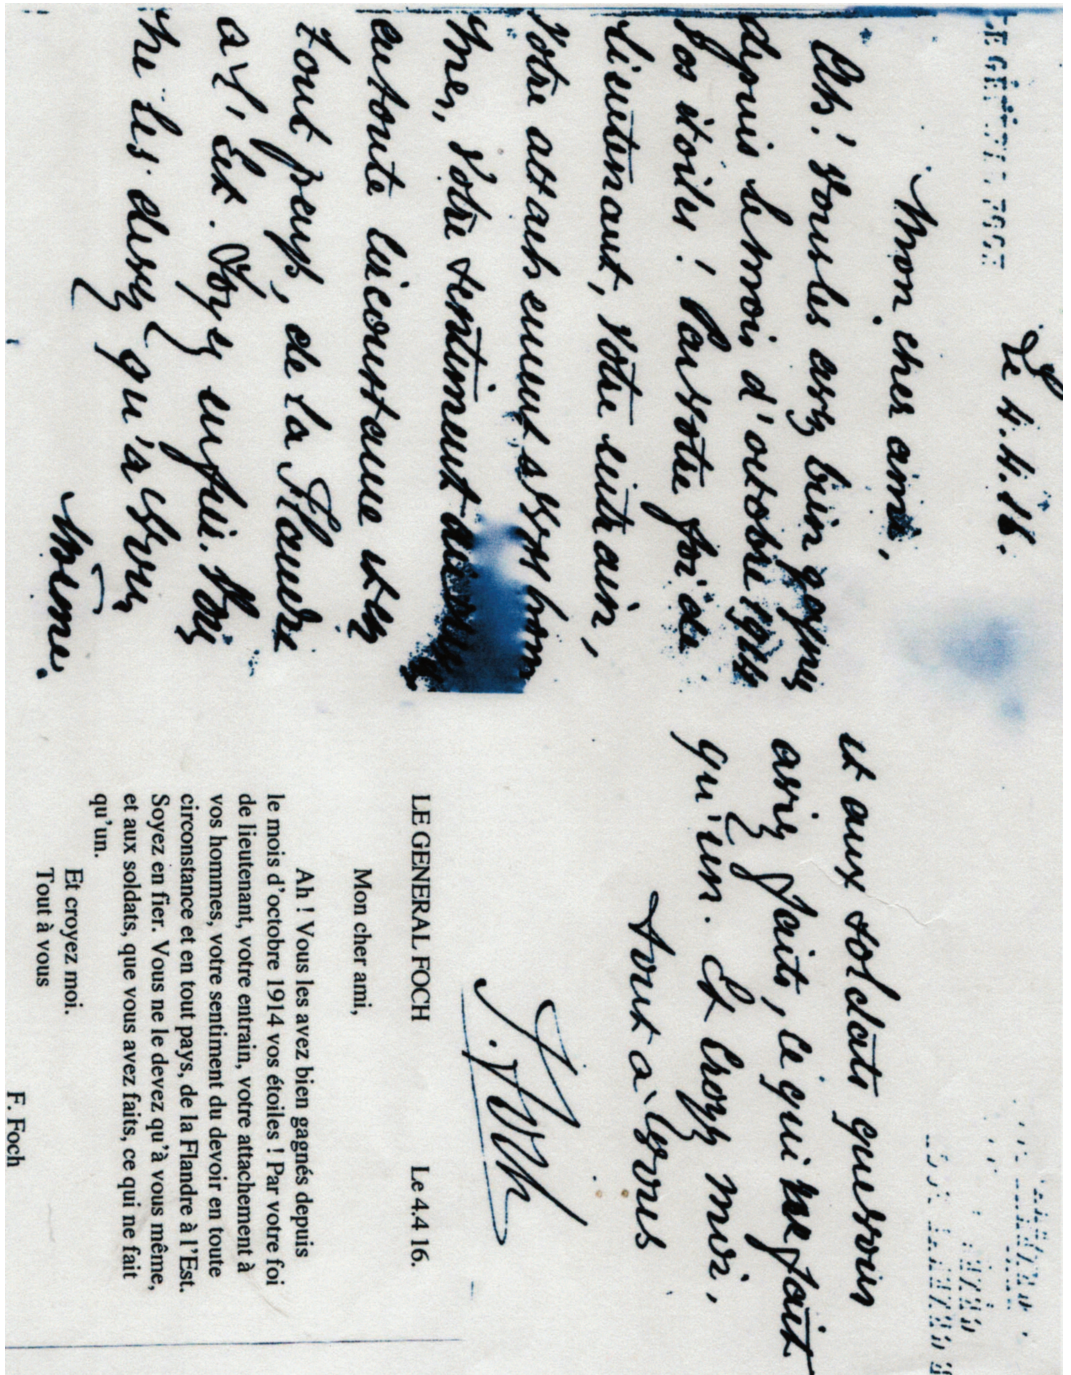 LE GÉNÉRAL FOCH
Le 4.4.16.
Mon cher ami,
Ah! Vous les avez bien gagnés
depuis le mois d'octobre 1914
vos étoiles! Par votre foi de
lieutenant, votre entrain,
votre attachement à vos hom
mes, votre sentiment du devoir
en toute circonstance et en
tout pays, de la Flandre
à l'Est. Soyez en fier. Vous
ne les devez qu'à vous
même.
et aux soldats que vous
avez faits, ce qui ne fait
qu'un. Et croyez moi,
tout à vous
F. Foch
LE GENERAL FOCH Le 4.4 16.
Mon cher ami,
Ah ! Vous les avez bien gagnés depuis
le mois d'octobre 1914 vos étoiles ! Par votre foi
de lieutenant, votre entrain, votre attachement à
vos hommes, votre sentiment du devoir en toute
circonstance et en tout pays, de la Flandre à l'Est.
Soyez en fier. Vous ne le devez qu'à vous même,
et aux soldats, que vous avez faits, ce qui ne fait
qu'un.
Et croyez moi.
Tout à vous
F. Foch